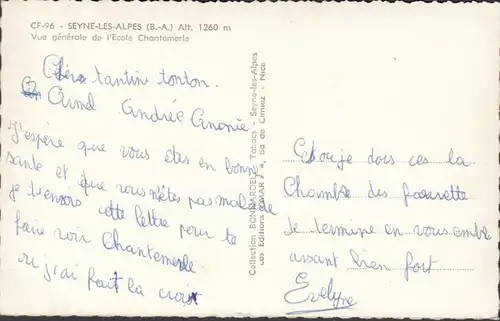 CF-96 - SEYNE-LES-ALPES (B.-A.) Alt. 1260 m
Vue générale de l'Ecole Chantemerle
Chère tantine tonton.
André
j'espère que vous êtes en bonne
santé et que vous n'êtes pas malade
je t'envois cette lettre pour te
faire voir Chantemerle
ou j'ai fait la croix
Collection BONNARDEL - Tabacs - Seyne-les-Alpes
Les Editions 4, Bd de Cimiez - Nice
C'est ou je dors ces la
Chambre des fauvette
Je termine en vous embr
assant bien fort
Evelyne